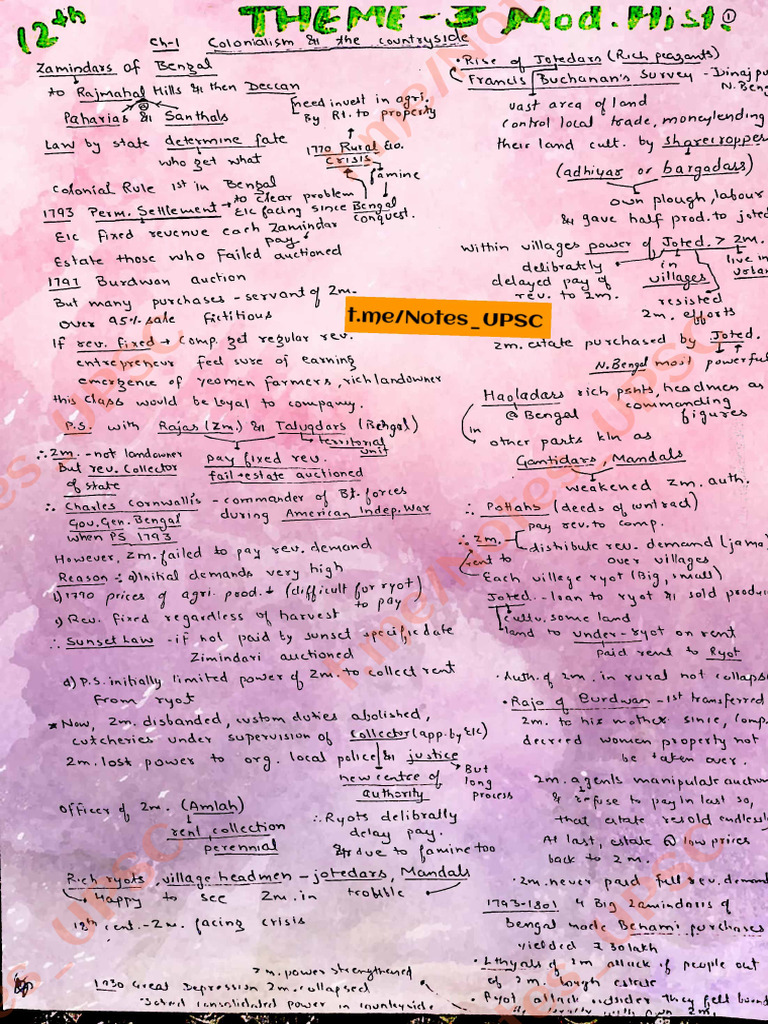 12th
THEME-3 Mod. Hist. 1
Ch-1 Colonialism & the countryside
Zamindars of Bengal
to Rajmahal Hills & then Deccan
Paharias & Santhals
Law by state determine fate
who get what
need invest in agri.
By Rt. to property
1770 Rural Eco.
CRISIS
famine
Colonial Rule 1st in Bengal
1793 Perm. Settlement → to clear problem
EIC facing since Bengal
conquest.
EIC fixed revenue each Zamindar
pay
Estate those who Failed auctioned
1797 Burdwan auction
But many purchases - servant of Zm.
over 95% sale fictitious
t.me/Notes_UPSC
If rev. fixed → comp. get regular rev.
entrepreneur feel sure of earning
emergence of yeomen farmers, rich landowner
this class would be loyal to company.
P.S. with Rajas (Zm.) & Taluqdars (Bengal)
territorial
unit
∴ Zm. - not landowner
But rev. Collector
of state
pay fixed rev.
fail → estate auctioned
∴ Charles Cornwallis - commander of Bt. forces
Gov. Gen. Bengal during American Indep. War
when PS 1793
However, Zm. failed to pay rev. demand
Reason : a) Initial demands very high
1790 prices of agri. prod. ↓ (difficult for ryot)
to pay
Rev. fixed regardless of harvest
∴ Sunset Law - if not paid by sunset specific date
Zimindari auctioned
d) P.S. initially limited power of Zm. to collect rent
from ryot
* Now, Zm. disbanded, custom duties abolished,
cutcheries under supervision of collector (app. by EIC)
Zm. lost power to org. local police & justice
new centre of
authority
But
long
process
Officer of Zm. (Amlah)
rent collection
perennial
∴ Ryots delibrally
delay pay.
& due to famine too
Rich ryots, village headmen - jotedars, Mandals
Happy to see Zm. in trobible
18th cent. - Zm. facing crisis
Zm. power strengthened
1930 Great Depression Zm. collapsed
Joted consolidated power in countryside
• Rise of Jotedars (Rich peasants)
Francis Buchanan's Survey - Dinajpu
N. Beng
vast area of land
control local trade, moneylending
their land cult. by sharecroppers
(adhiyar or bargadars)
own plough, labour
& gave half prod. to joted
Within villages power of Joted. > Zm.
delibrately
delayed pay of
rev. to Zm.
in
villages
live in
resisted
Zm. efforts
Zm. estate purchased by Joted.
N. Bengal most powerful
Haoladars rich psnts, headmen as
@ Bengal commanding
figures
in
other parts kln as
Gantidars, Mandals
weakened Zm. auth.
∴ Pottahs (deeds of contract)
pay rev. to comp.
∴ Zm. distibute rev. demand (jama)
over villages
rent to
Each village ryot (Big, small)
Joted. - loan to ryot & sold produ
cultv. some land
land to under-ryot on rent
paid rent to Ryot
• Auth. of Zm. in rural not collaps
• Raja of Burdwan - 1st transferred
Zm. to his mother since, Comp.
decreed women property not
be taken over.
Zm. agents manipulate auction
& refuse to pay in last so,
that estate resold endlessly
At last, estate @ low prices
back to Zm.
• Zm. never paid full rev. demand
1793-1801 4 Big Zamindaris of
Bengal made Benami purchases
yielded ₹ 30 lakh
• Lthyals of Zm. attack if people out
of Zm. bough estate
• Ryot attack outsider they felt bound